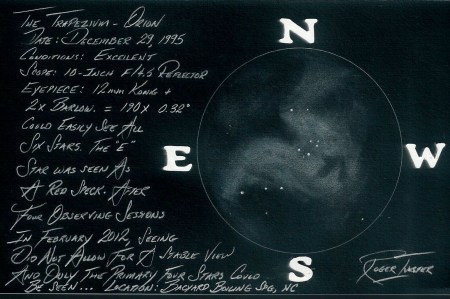 The Trapezium - Orion
Date: December 29, 1995
Conditions: Excellent
Scope: 10-Inch F/4.5 Reflector
Eyepiece: 12mm Konig +
2x Barlow. = 190x 0.32°
Could Easily See All
Six Stars. The "E"
Star was seen As
A Red Speck. After
Four Observing Sessions
In February 2012, seeing
Do Not Allow For A Stable View
And Only The Primary Four Stars Could
Be Seen... Location: Backyard Boiling Spg, NC
N
E
W
S
Roger Ivester